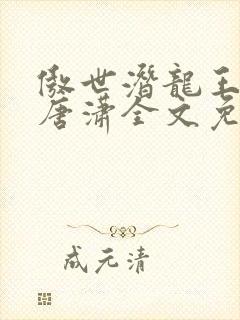 傲世潛龍王
唐潇全文免
成元清